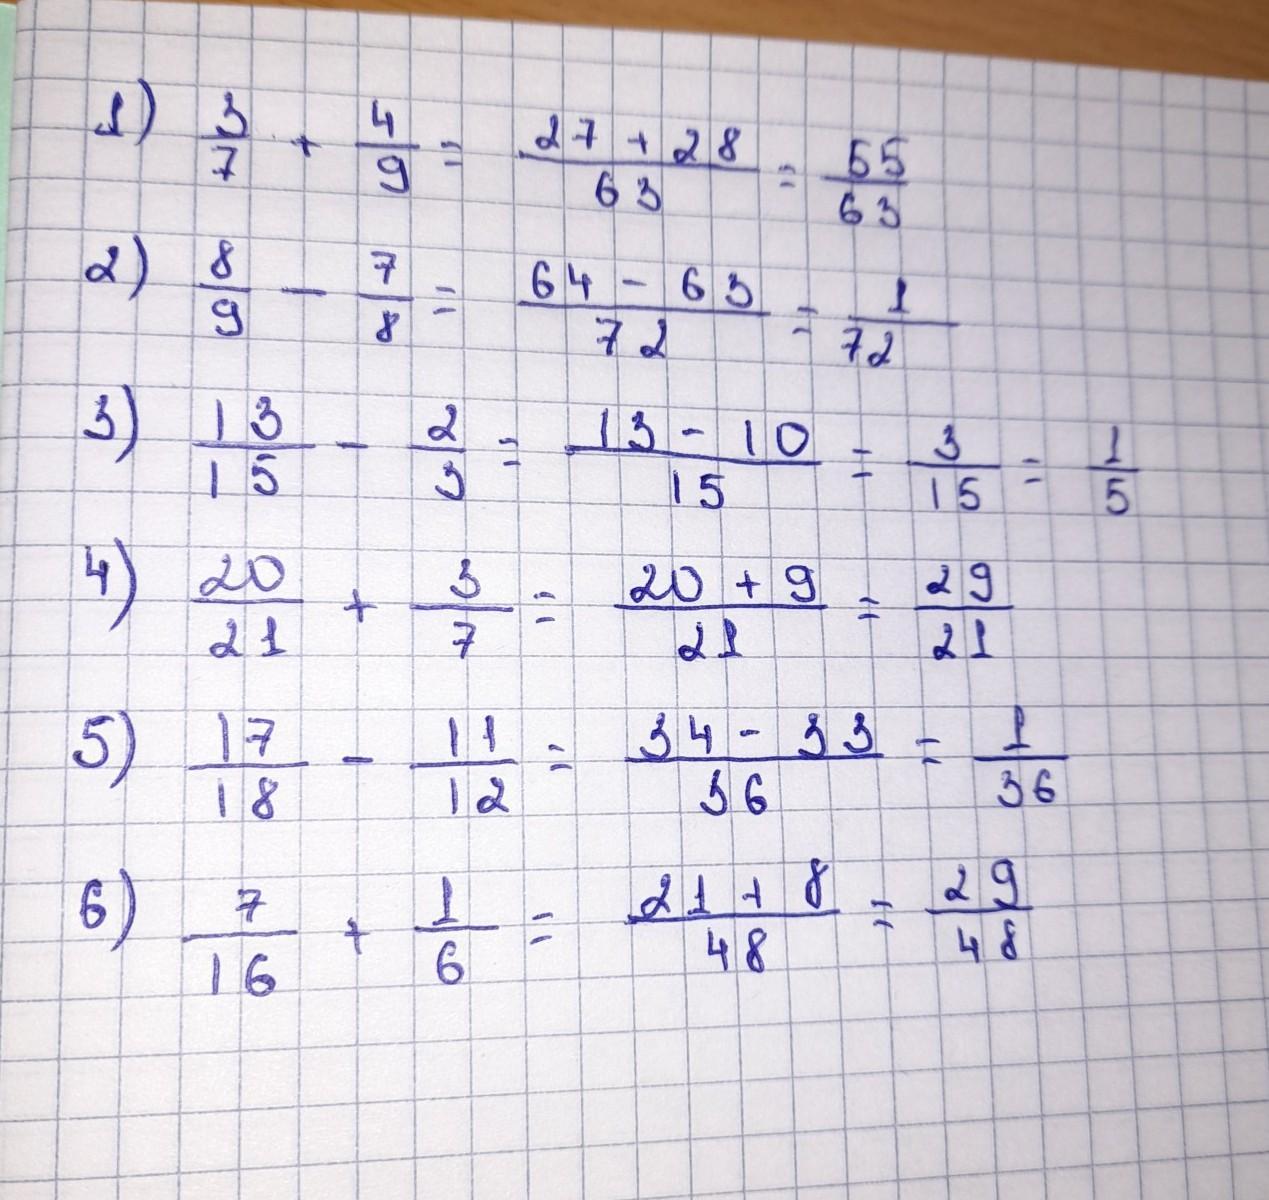 1) 3/7 + 4/9 = (27 + 28)/63 = 55/63
2) 8/9 - 7/8 = (64 - 63)/72 = 1/72
3) 13/15 - 2/3 = (13 - 10)/15 = 3/15 = 1/5
4) 20/21 + 3/7 = (20 + 9)/21 = 29/21
5) 17/18 - 11/12 = (34 - 33)/36 = 1/36
6) 7/16 + 1/6 = (21 + 8)/48 = 29/48